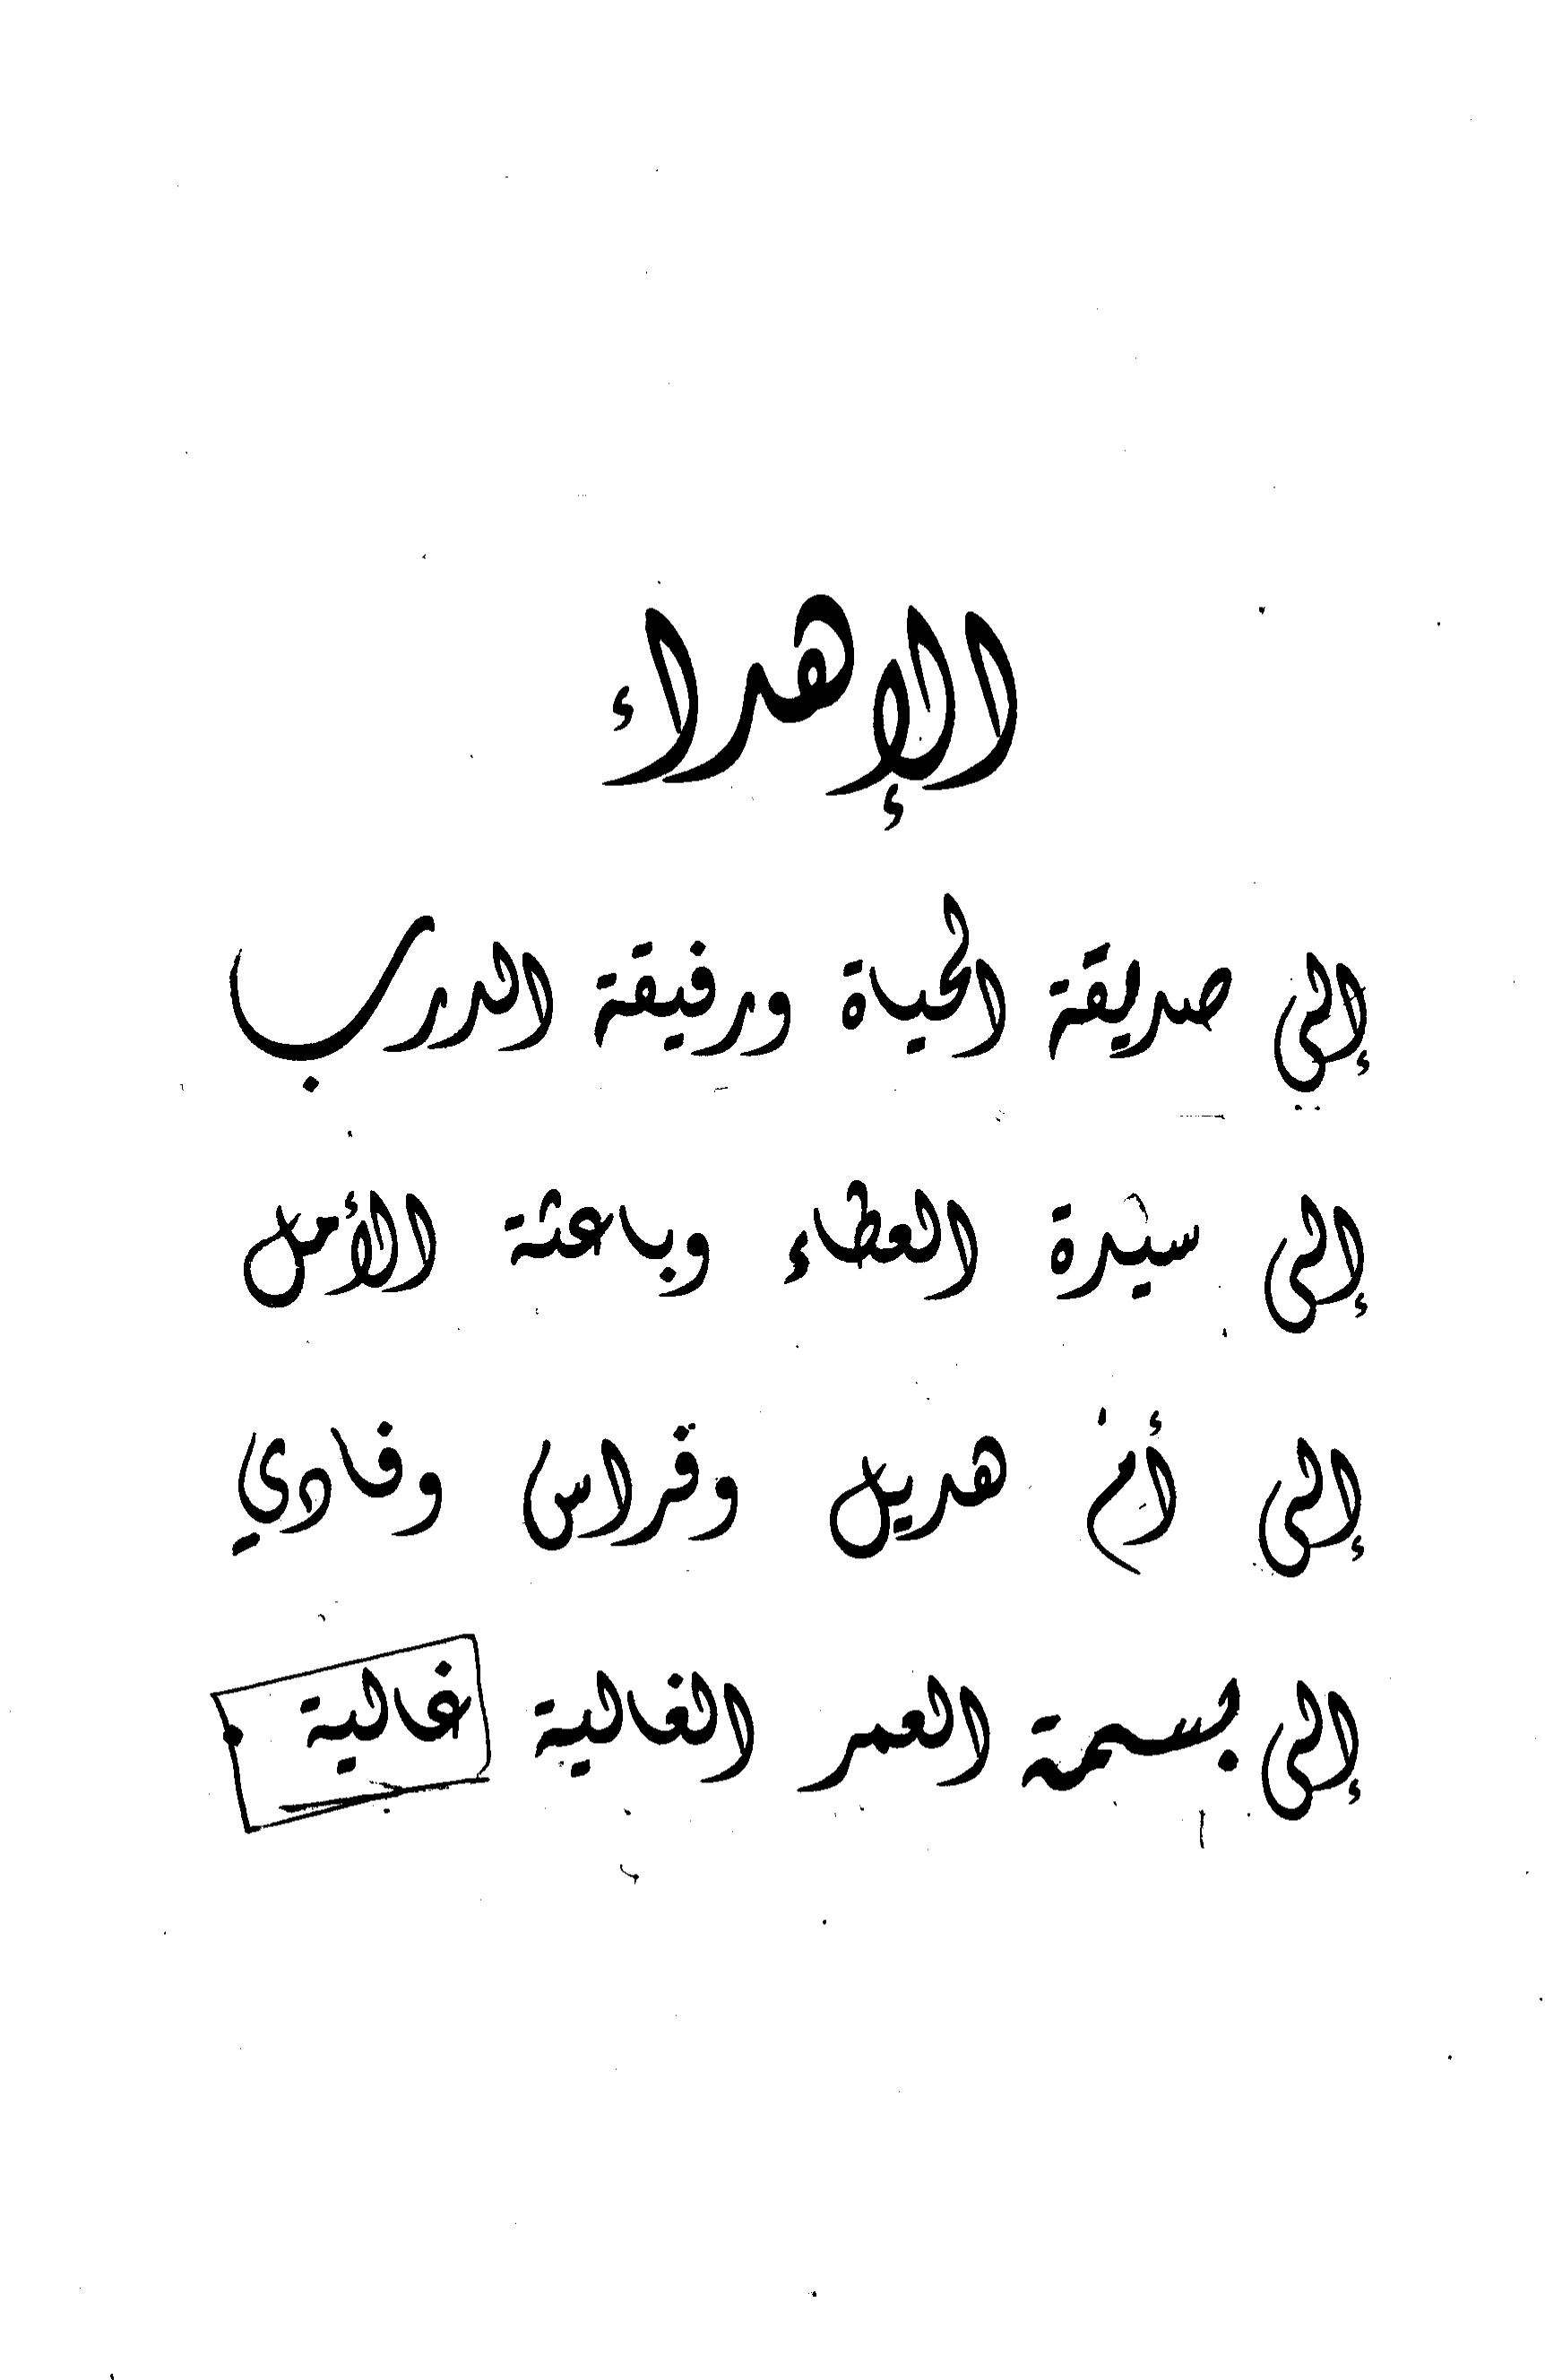 الإهداء
إلى صديقة الحياة ورفيقة الدرب
إلى سيدة العطاء وباعثة الأمل
إلى أم هديل وفراس وفادي
إلى بسمة العمر الغالية غالية .